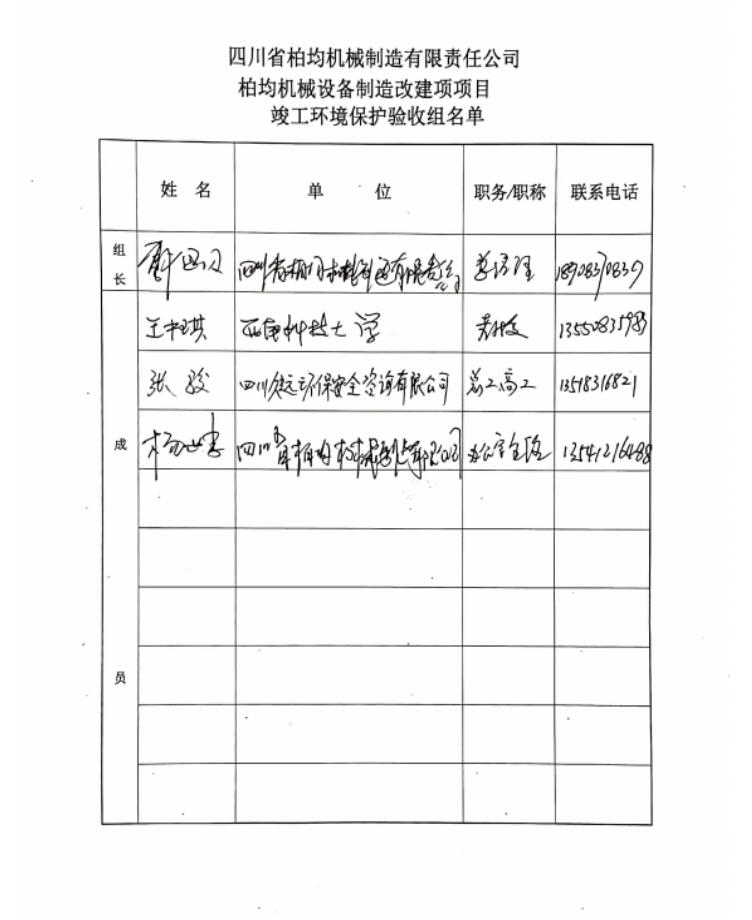 四川省柏均机械制造有限责任公司
柏均机械设备制造改建项项目
竣工环境保护验收组名单
姓 名 单 位 职务/职称 联系电话
组长 四川省柏均机械制造有限责任公司 总经理 18908370839
王 琪 西南科技大学 13550835983
张 骏 四川 远环保安全咨询有限公司 高工 13518316821
成 杨 四川省柏均机械制造有限公司 办公室 13541216488
员